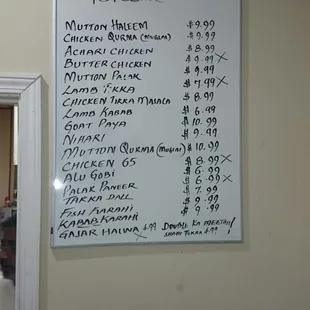 MUTTON HALEEM $9.99
CHICKEN QURMA $9.99
ACHARI CHICKEN $8.99
BUTTER CHICKEN $9.99 X
MUTTON PALAK $9.99
LAMB TIKKA $7.99 X
CHICKEN TIKKA MASALA $8.99
LAMB KABAB $6.99
GOAT PAYA $10.99
NIHARI $9.99
MUTTON QURMA $10.99
CHICKEN 65 $8.99 X
ALU GOBI $6.99
PALAK PANEER $6.99 X
TARKA DALL $7.99
FISH KARAHI $9.99
KABAB KARAHI $9.99
GAJAR HALWA 4.99 DOUBLE KA MEETHA/
SHAHI TUKRA 4.99